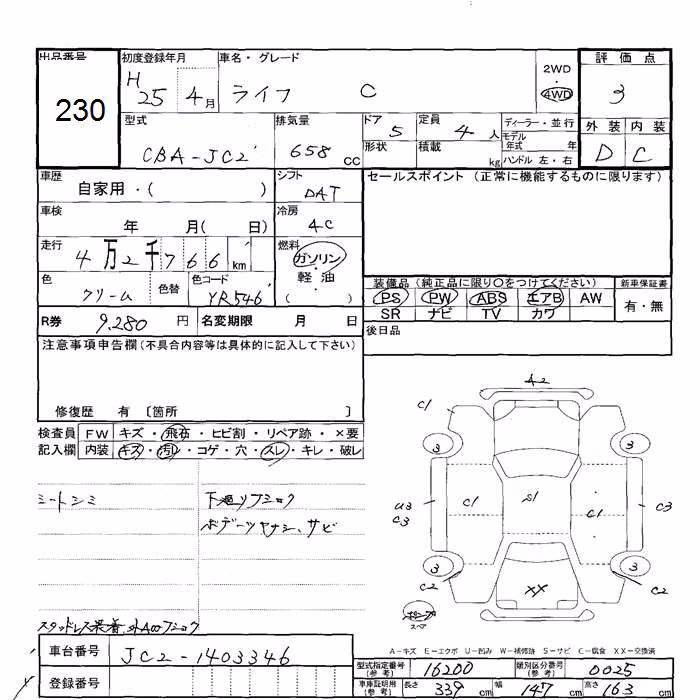 出品番号
230
初度登録年月
H 25 4月
車名・グレード
ライフ C
2WD
・
4WD
評価点
3
外装 内装
D C
型式
CBA-JC2
排気量
658 cc
ドア 5
形状
定員 4人
積載 kg
ディーラー・並行
モデル年式 年
ハンドル 左・右
車歴
自家用・( )
シフト
DAT
セールスポイント (正常に機能するものに限ります)
車検
年 月( 日)
冷房
AC
走行
4万2千766km
燃料
ガソリン
・
軽油
( )
色
クリーム
色替
色コード
YR546
装備品 (純正品に限り○をつけてください)
PS PW ABS エアB AW
SR ナビ TV カワ
新車保証書
有・無
R券 9,280円
名変期限 月 日
後日品
注意事項申告欄(不具合内容等は具体的に記入して下さい)
修復歴 有 〔箇所 〕
検査員
記入欄
FW キズ・飛石・ヒビ割・リペア跡・×要
内装 キズ・汚れ・コゲ・穴・スレ・キレ・破レ
シートシミ
下廻りフショク
ボデーツヤナシ、サビ
スタッドレス装着
A2
C1
3
3
U3
C3
C1
S1
C1
C3
3
3
C2
XX
C2
スペア
A-キズ E-エクボ U-凹み W-補修跡 S-サビ C-腐食 XX-交換済
車台番号
JC2-1403346
登録番号
型式指定番号
(参考)
16200
類別区分番号
(参考)
0025
車庫証明用
(参考)
長さ 339 cm
幅 147 cm
高さ 163 cm